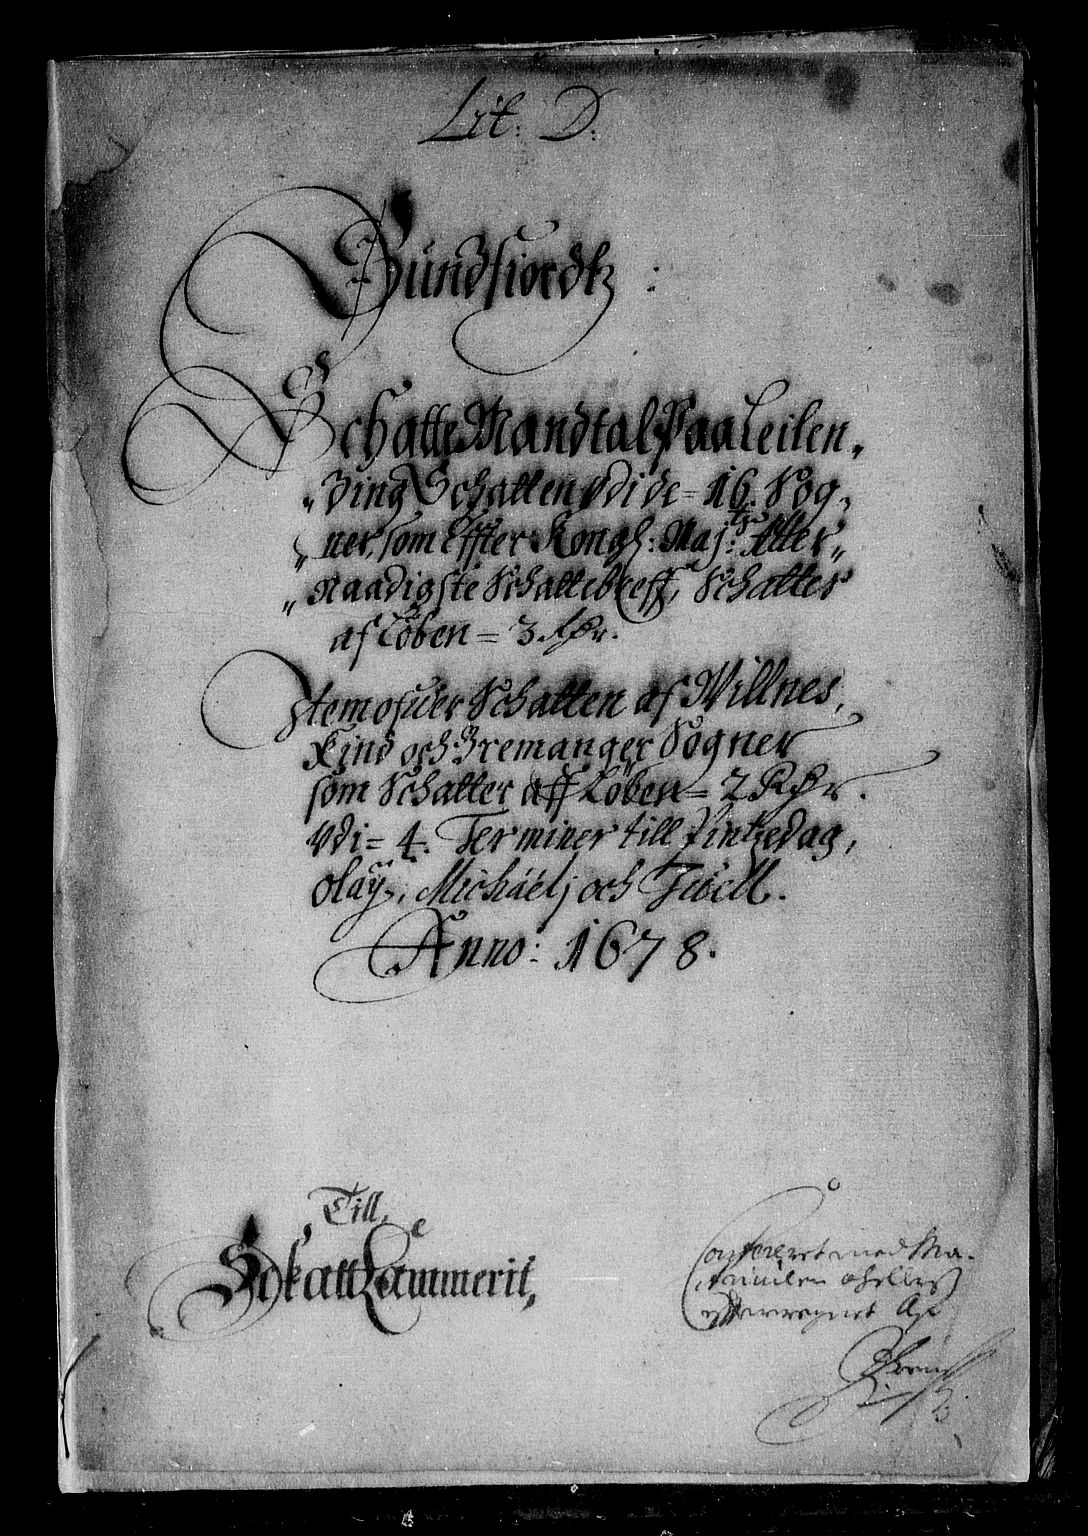 Lit: D:
Sundfiordtz:
Schatte Mandtal Paa Leilen„
„ding Schatten Udi de = 16. Sog„
„ner, som Effter Kongl: Maj:tz Aller„
„Naadigste Schattebreff, Schatter
af Løben = 3 Rdr.
Item osuer Schatten af Villnes,
Kind och Bremanger Sogner
som Schatter aff Løben = 2 Rdr.
Udi = 4. Terminer till Pintzedag,
Olay, Michäelj och Juell.
Anno: 1678.
Till,
Schatt Cammerit,
Confereret med Ma„